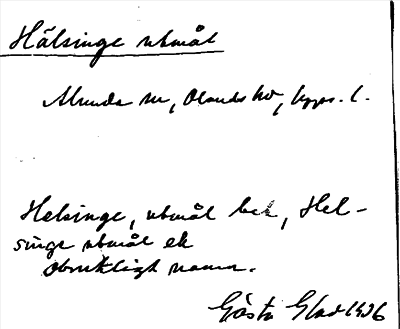 Hälsinge utmål
Alunda sn, Olands hd, Upps. l.
Helsinge, utmål bek, Hel-
singe utmål ek
obrukligt namn.
Gösta Glad 1926